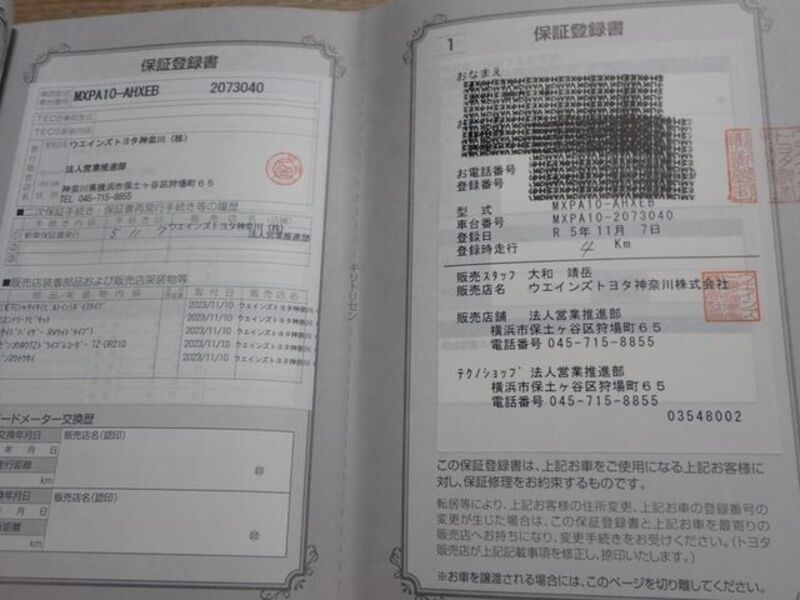 保証登録書
車両型式
車台番号
MXPA10-AHXEB 2073040
TECS車両型式
TECS架装内容
発行販売店名
ウエインズトヨタ神奈川(株)
法人営業推進部
神奈川県横浜市保土ヶ谷区狩場町65
TEL 045-715-8855
■二次保証手続き・保証書再発行手続き等の履歴
手続き内容 手続き日 販売店名(店舗)
①新車保証書発行 5 11 7 ウエインズトヨタ神奈川(株)
法人営業推進部
■販売店装着部品および販売店架装物等
部品/架装物内容 取付日 販売店名
2023/11/10 ウエインズトヨタ神奈川
2023/11/10 ウエインズトヨタ神奈川
サイドバイザー RVワイドタイプ 2023/11/10 ウエインズトヨタ神奈川
ドライブレコーダー TZ-DR210 2023/11/10 ウエインズトヨタ神奈川
2023/11/10 ウエインズトヨタ神奈川
ードメーター交換歴
交換年月日 販売店名(認印)
年 月 日
走行距離
km
印
換年月日 販売店名(認印)
年 月 日
距離
km
印
キリトリセン
1
保証登録書
おなまえ
お電話番号
登録番号
型式 MXPA10-AHXEB
車台番号 MXPA10-2073040
登録日 R 5年11月 7日
登録時走行 4 Km
販売スタッフ 大和 靖岳
販売店名 ウエインズトヨタ神奈川株式会社
販売店舗 法人営業推進部
横浜市保土ヶ谷区狩場町65
電話番号 045-715-8855
テクノショップ 法人営業推進部
横浜市保土ヶ谷区狩場町65
電話番号 045-715-8855
03548002
この保証登録書は、上記お車をご使用になる上記お客様に
対し、保証修理をお約束するものです。
転居等により、上記お客様の住所変更、上記お車の登録番号の
変更が生じた場合は、この保証登録書と上記お車を最寄りの
販売店へお持ちになり、変更手続きをお受けください。(トヨタ
販売店が上記記載事項を修正し、捺印いたします。)
※お車を譲渡される場合には、このページを切り離してください。